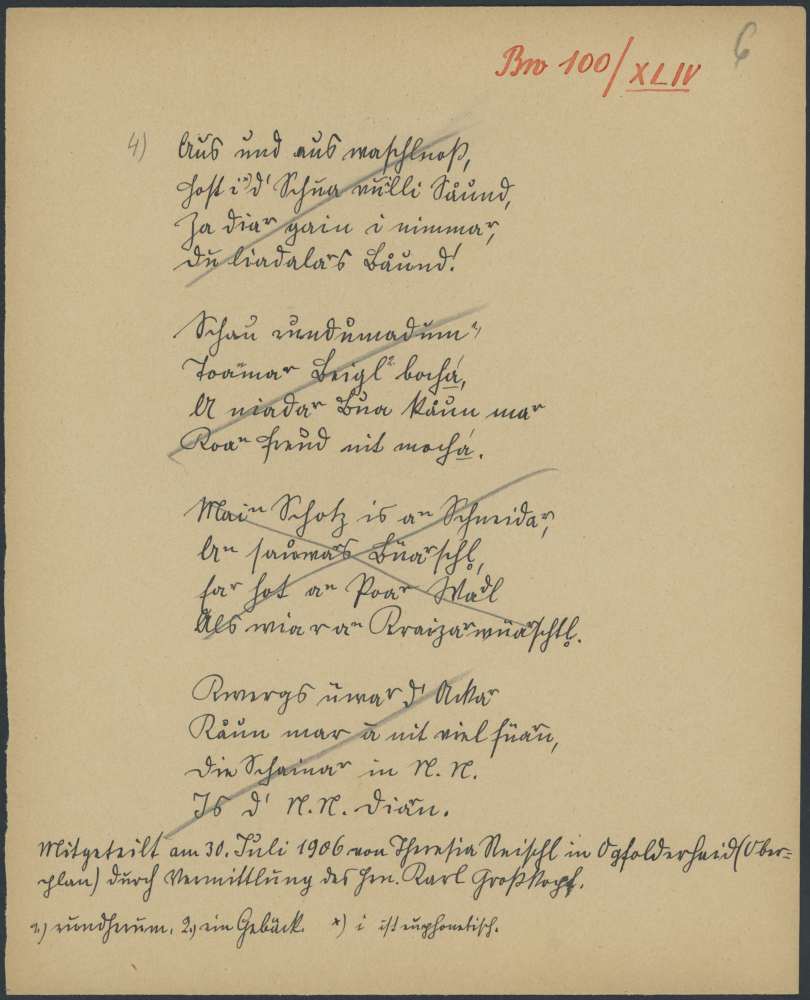 6
Bw 100/XLIV
4) Aus und aus waschlnoß,
Host i×) d' Schua vulli Såund,
Za diar gain i nimmar,
Du liadalars Låund!
Schau rundumadum¹)
Toamar Beigl² bochá,
A niadar Bua kåun mar
Koaⁿ Freud nit mochá.
Maiⁿ Schotz is aⁿ Schneidar,
Aⁿ sauwars Büarschl,
Ear hot aⁿ Poar Wadl
Als wia r aⁿ Kraizarwüarschtl.
Kwergs üwar d' Ackar
Kåun mar a nit viel füarn,
Die Schainar in N. N.
Is d' N. N. Diarn.
Mitgeteilt am 30. Juli 1906 von Theresia Neischl in Ogfolderheid (Ober=
plan) durch Vermittlung des Hrn. Karl Großkopf.
1.) rundherum. 2.) ein Gebäck. ×) i ist euphonetisch.